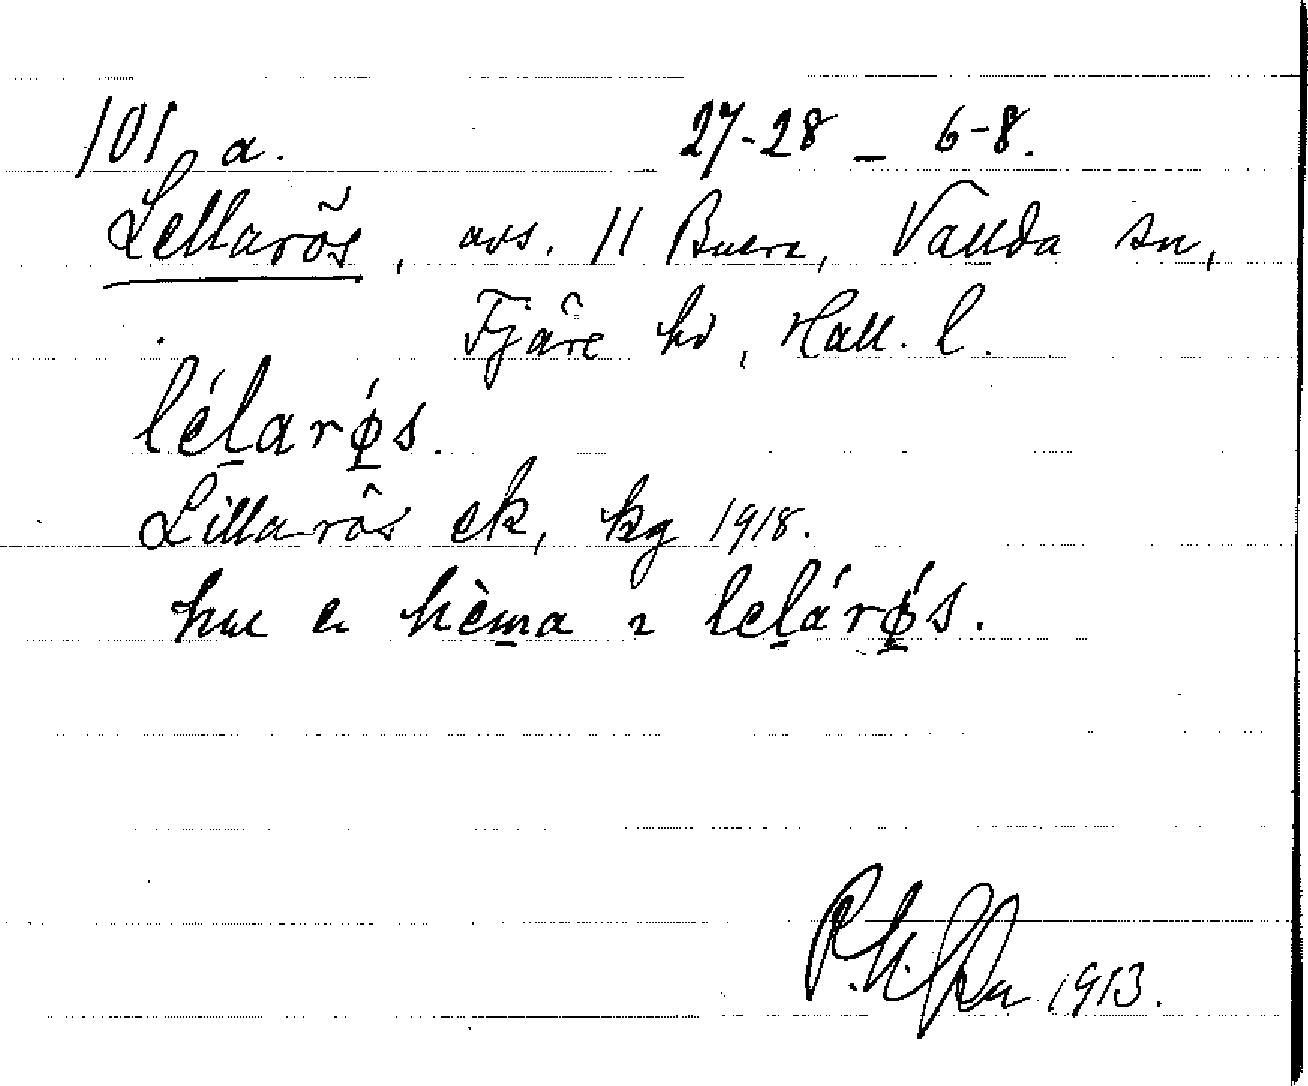 101 a. 27-28 – 6-8.
Lellarös, avs. 11 Buera, Vallda sn,
Fjäre hd, Hall. l.
lélarǿs.
Lillarös ek, kg 1918.
hu e hèma ı lelárǿs.
1913.